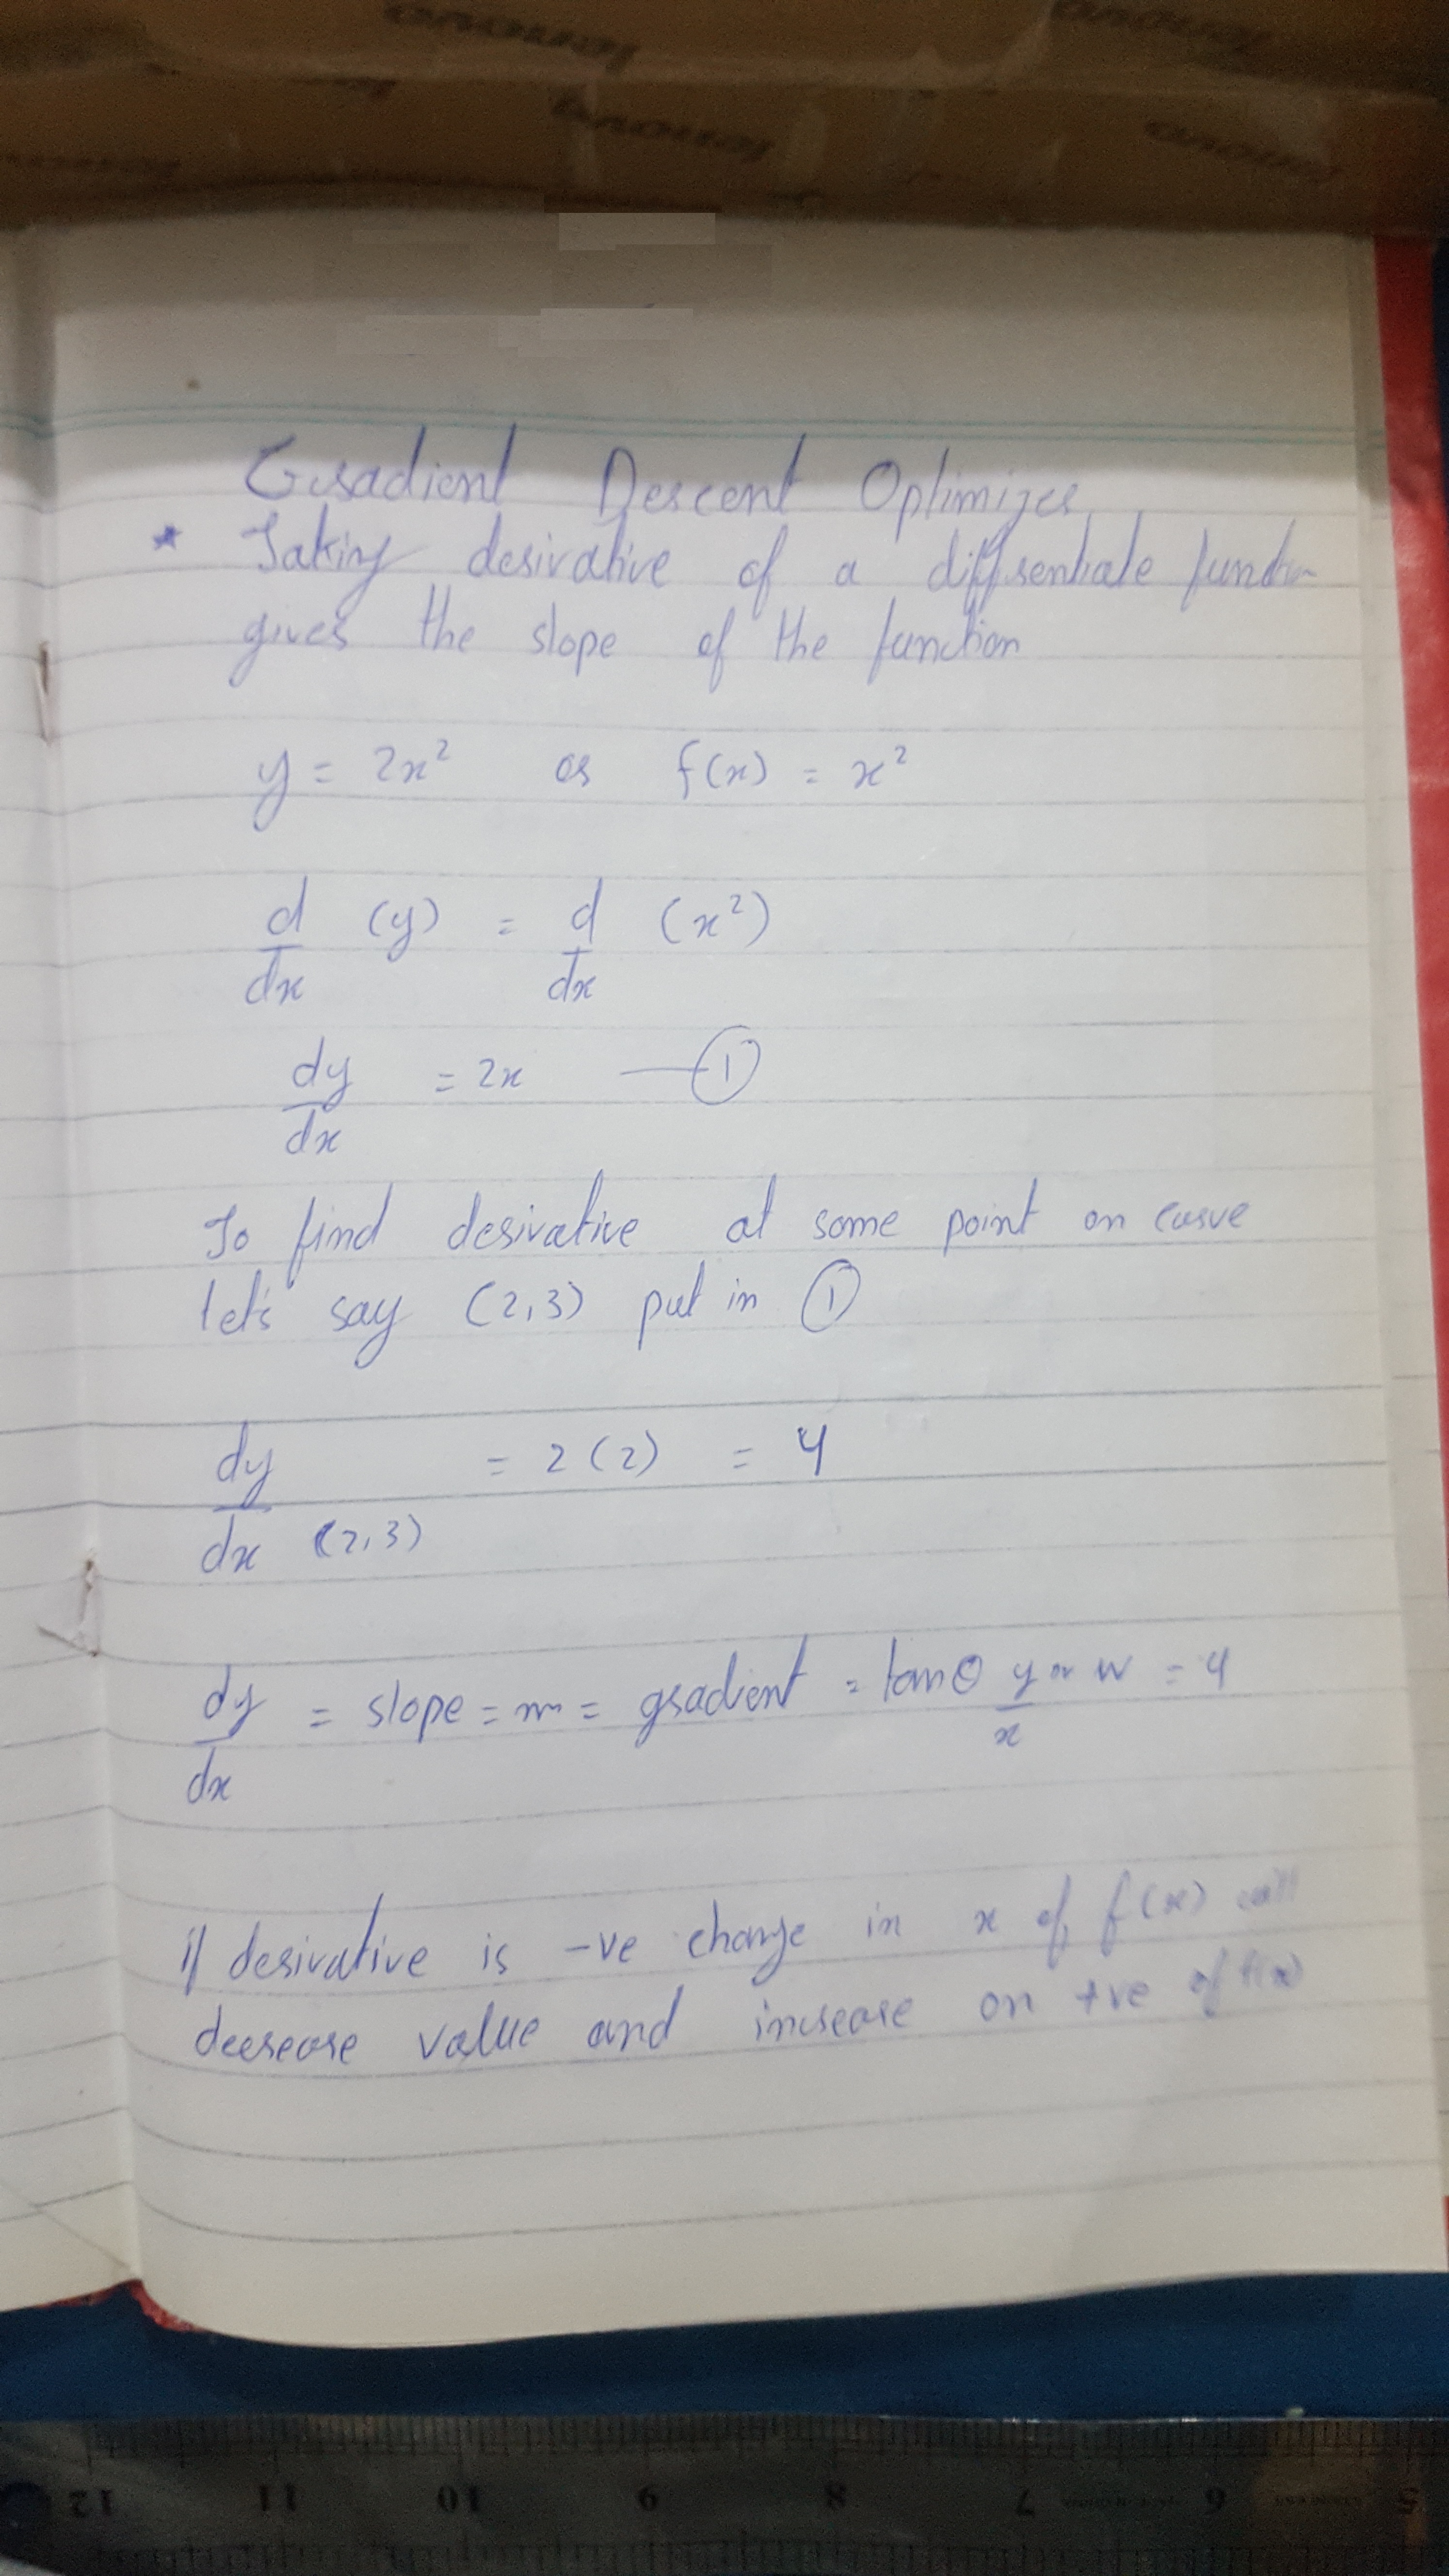 lenovo
lenovo
lenovo
lenovo
Gradient Descent Optimizer
* Taking derivative of a diffrentiale function
gives the slope of the function
y = 2x² or f(x) = x²
d/dx (y) = d/dx (x²)
dy/dx = 2x — ①
To find derivative at some point on curve
let's say (2,3) put in ①
dy/dx (2,3) = 2(2) = 4
dy/dx = slope = m = gradient = tanθ y/x or w = 4
if derivative is -ve change in x of f(x) will
decrease value and increase on +ve of f(x)
12 11 10 9 8 7 6 5